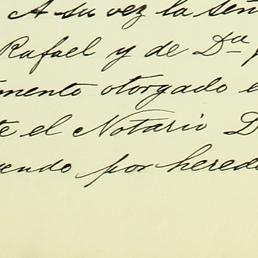 A su vez la señ
Rafael y de Dª
mento otorgado e
te el Notario D
endo por hered